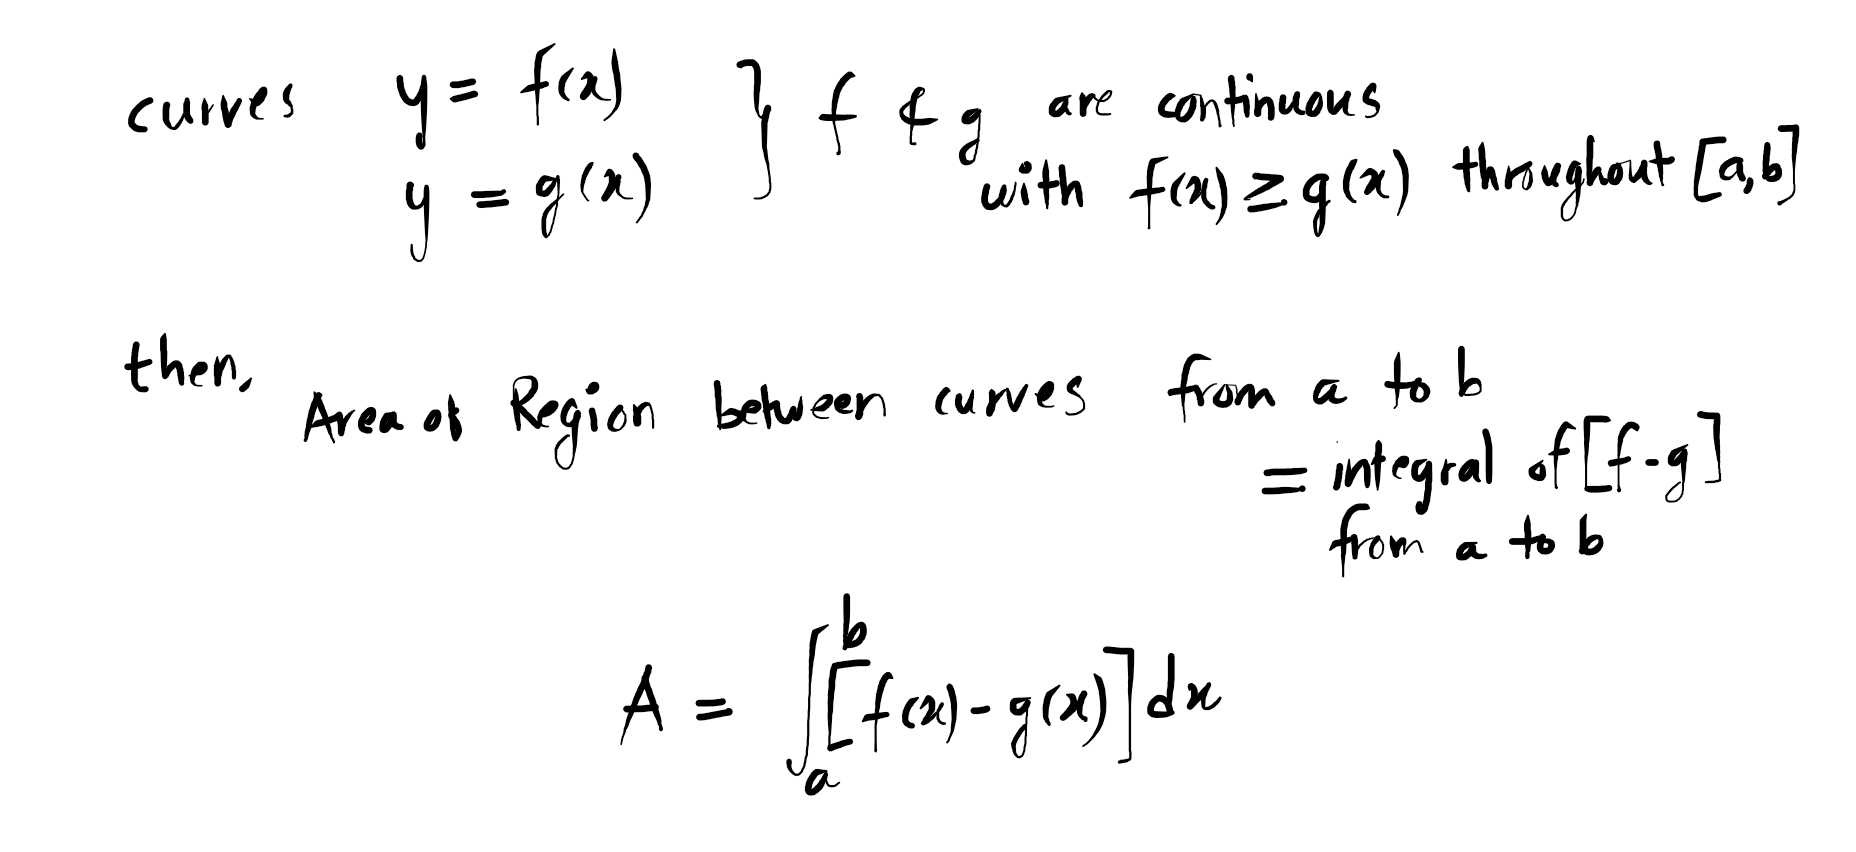 curves y = f(x) } f & g are continuous
y = g(x) with f(x) ≥ g(x) throughout [a,b]
then, Area of Region between curves from a to b
= integral of [f-g]
from a to b
A = ∫_a^b [f(x) - g(x)] dx